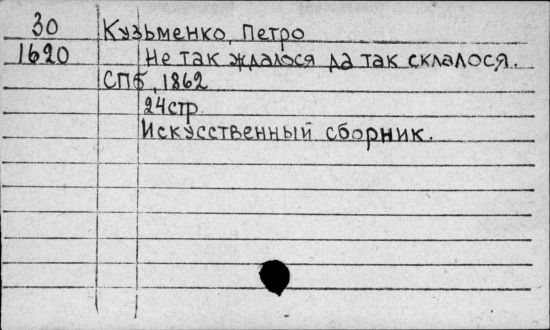 30 Кузьменко, Петро
1620 Не так ждалося да так склалося.
СПб, 1862
24стр
Искусственный сборник.